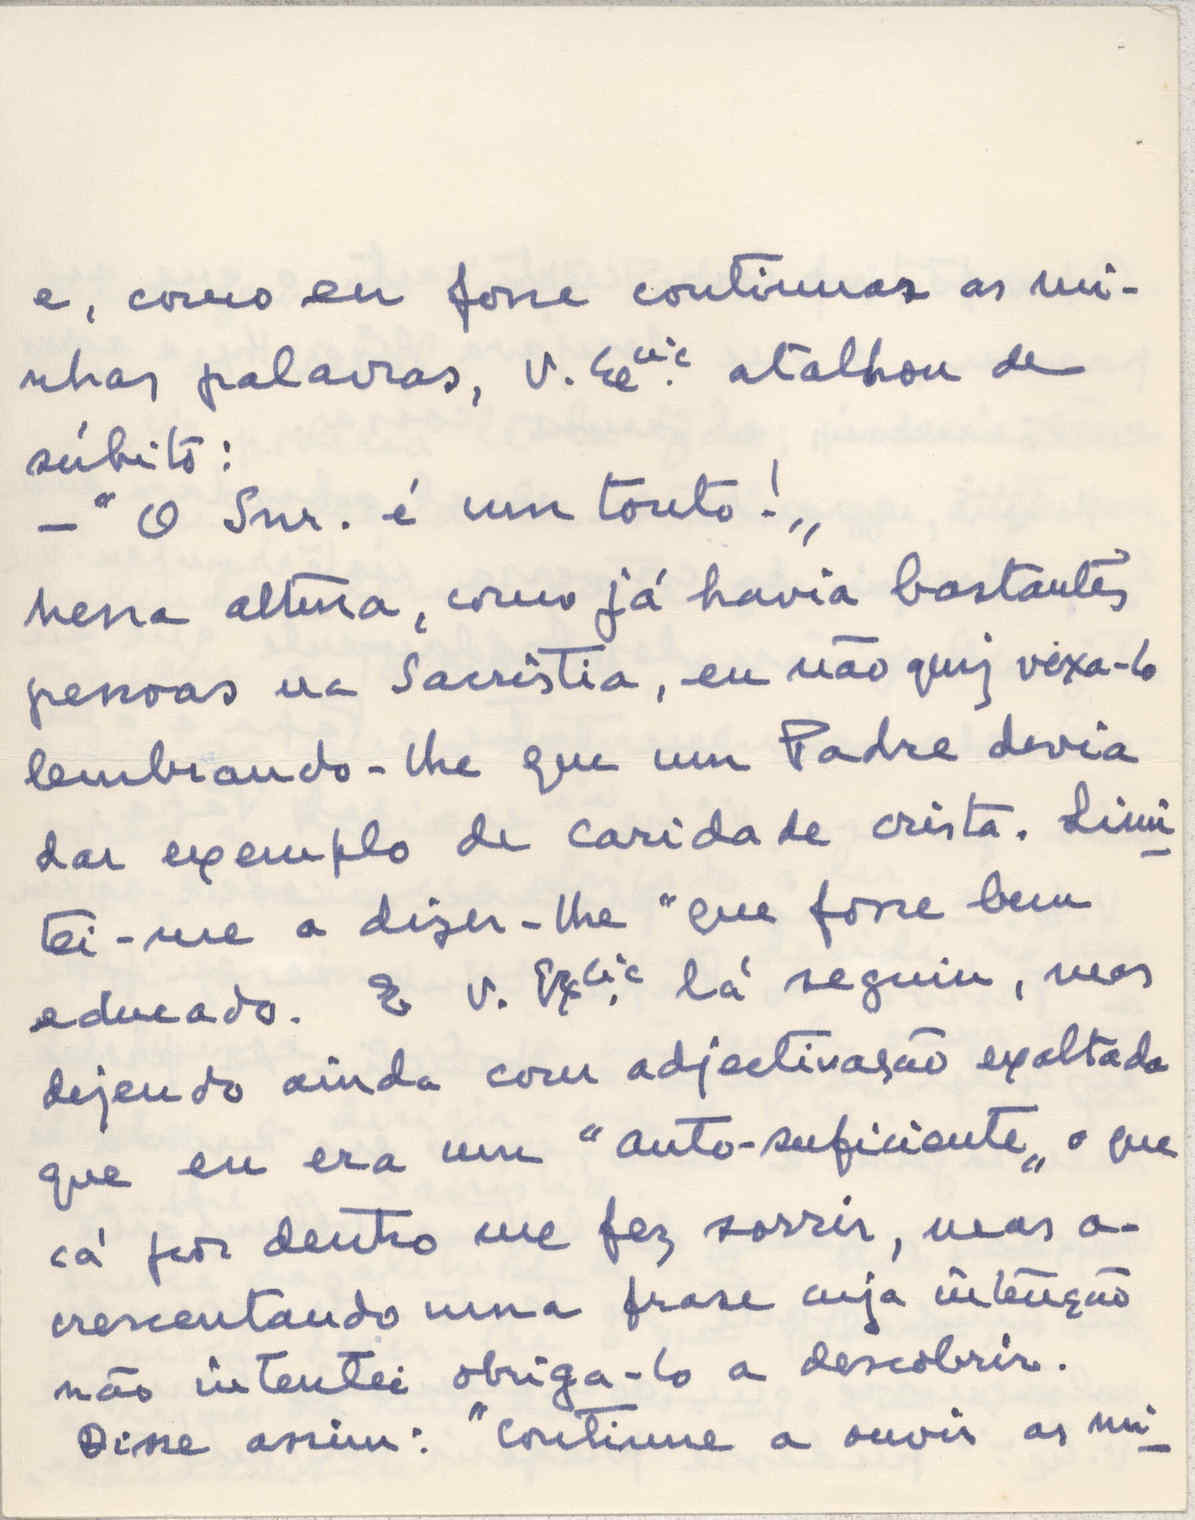 e, como eu fosse continuar as mi-
nhas palavras, V. Exᶜⁱᵃ. atalhou de
súbito:
— "O Snr. é um tonto!„
nessa altura, como já havia bastantes
pessoas na Sacristia, eu não quiz vexa-lo
lembrando-lhe que um Padre devia
dar exemplo de caridade cristã. Limi
tei-me a dizer-lhe "que fosse bem
educado. E V. Exᶜⁱᵃ. lá seguiu, mas
dizendo ainda com adjectivação exaltada
que eu era um "auto-suficiente„ o que
cá por dentro me fez sorrir, mas a-
crescentando uma frase cuja intenção
não intentei obriga-lo a descobrir.
Disse assim: "Continue a ouvir as mi